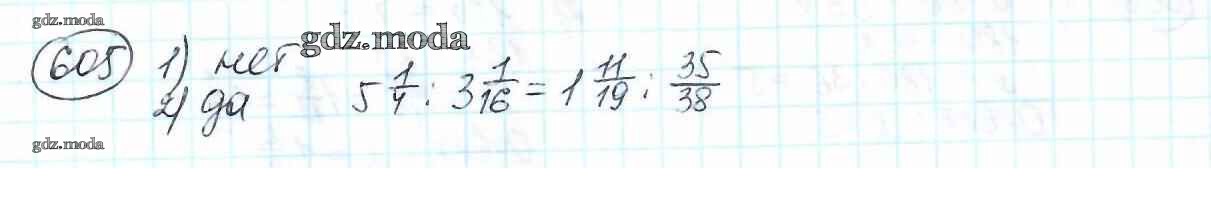 gdz.moda
605 1) нет gdz.moda
2) да 5 1/4 : 3 1/16 = 1 11/19 : 35/38
gdz.moda